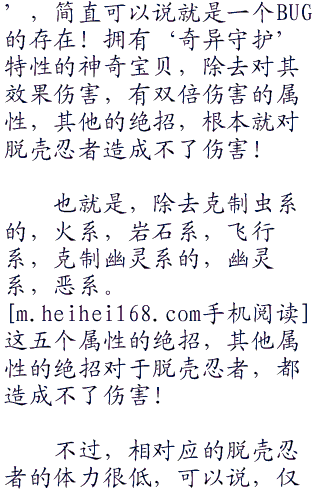 ’，简直可以说就是一个BUG
的存在！拥有‘奇异守护’
特性的神奇宝贝，除去对其
效果伤害，有双倍伤害的属
性，其他的绝招，根本就对
脱壳忍者造成不了伤害！
也就是，除去克制虫系
的，火系，岩石系，飞行
系，克制幽灵系的，幽灵
系，恶系。
[m.heihei168.com手机阅读]
这五个属性的绝招，其他属
性的绝招对于脱壳忍者，都
造成不了伤害！
不过，相对应的脱壳忍
者的体力很低，可以说，仅